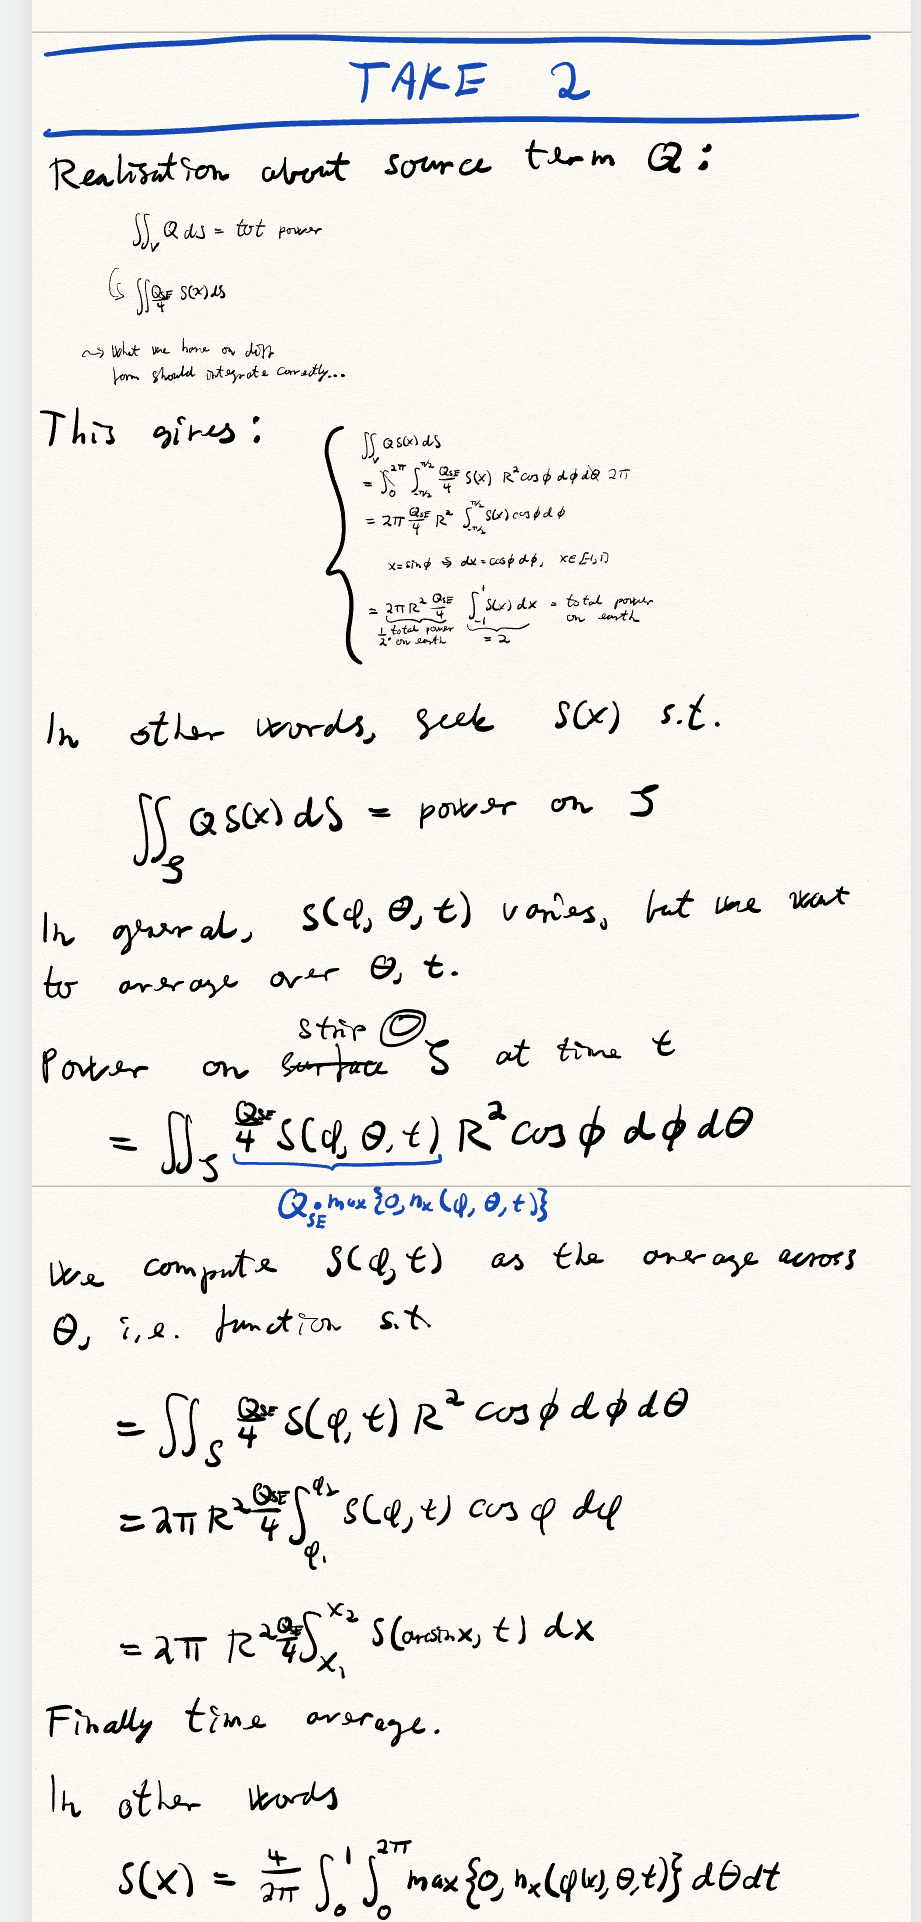 TAKE 2
Realisation about source term Q:
∬_V Q dS = tot power
↳ ∬ Q_SE/4 S(x) dS
⇝ What we have on diff
form should integrate correctly...
This gives:
∬_V Q S(x) dS
= ∫_0^{2π} ∫_{-π/2}^{π/2} Q_SE/4 S(x) R² cos ϕ dϕ dθ 2π
= 2π Q_SE/4 R² ∫_{-π/2}^{π/2} S(x) cos ϕ dϕ
x = sin ϕ ⇒ dx = cos ϕ dϕ, x ∈ [-1, 1]
= 2πR² Q_SE/4 ∫_{-1}^1 S(x) dx = total power on earth
1/2 · total power on earth = 2
In other words, seek S(x) s.t.
∬_S Q S(x) dS = power on S
In general, S(φ, θ, t) varies, but we want
to average over θ, t.
strip
Power on surface S at time t
= ∬_S Q_SE/4 S(φ, θ, t) R² cos ϕ dϕ dθ
Q_SE · max{0, n_x(φ, θ, t)}
We compute S(φ, t) as the average across
θ, i.e. function s.t.
= ∬_S Q_SE/4 S(φ, t) R² cos ϕ dϕ dθ
= 2π R² Q_SE/4 ∫_{φ_1}^{φ_2} S(φ, t) cos φ dφ
= 2π R² Q_SE/4 ∫_{x_1}^{x_2} S(arcsin x, t) dx
Finally time average.
In other words
S(x) = 4/2π ∫_0^1 ∫_0^{2π} max{0, n_x(φ(x), θ, t)} dθ dt